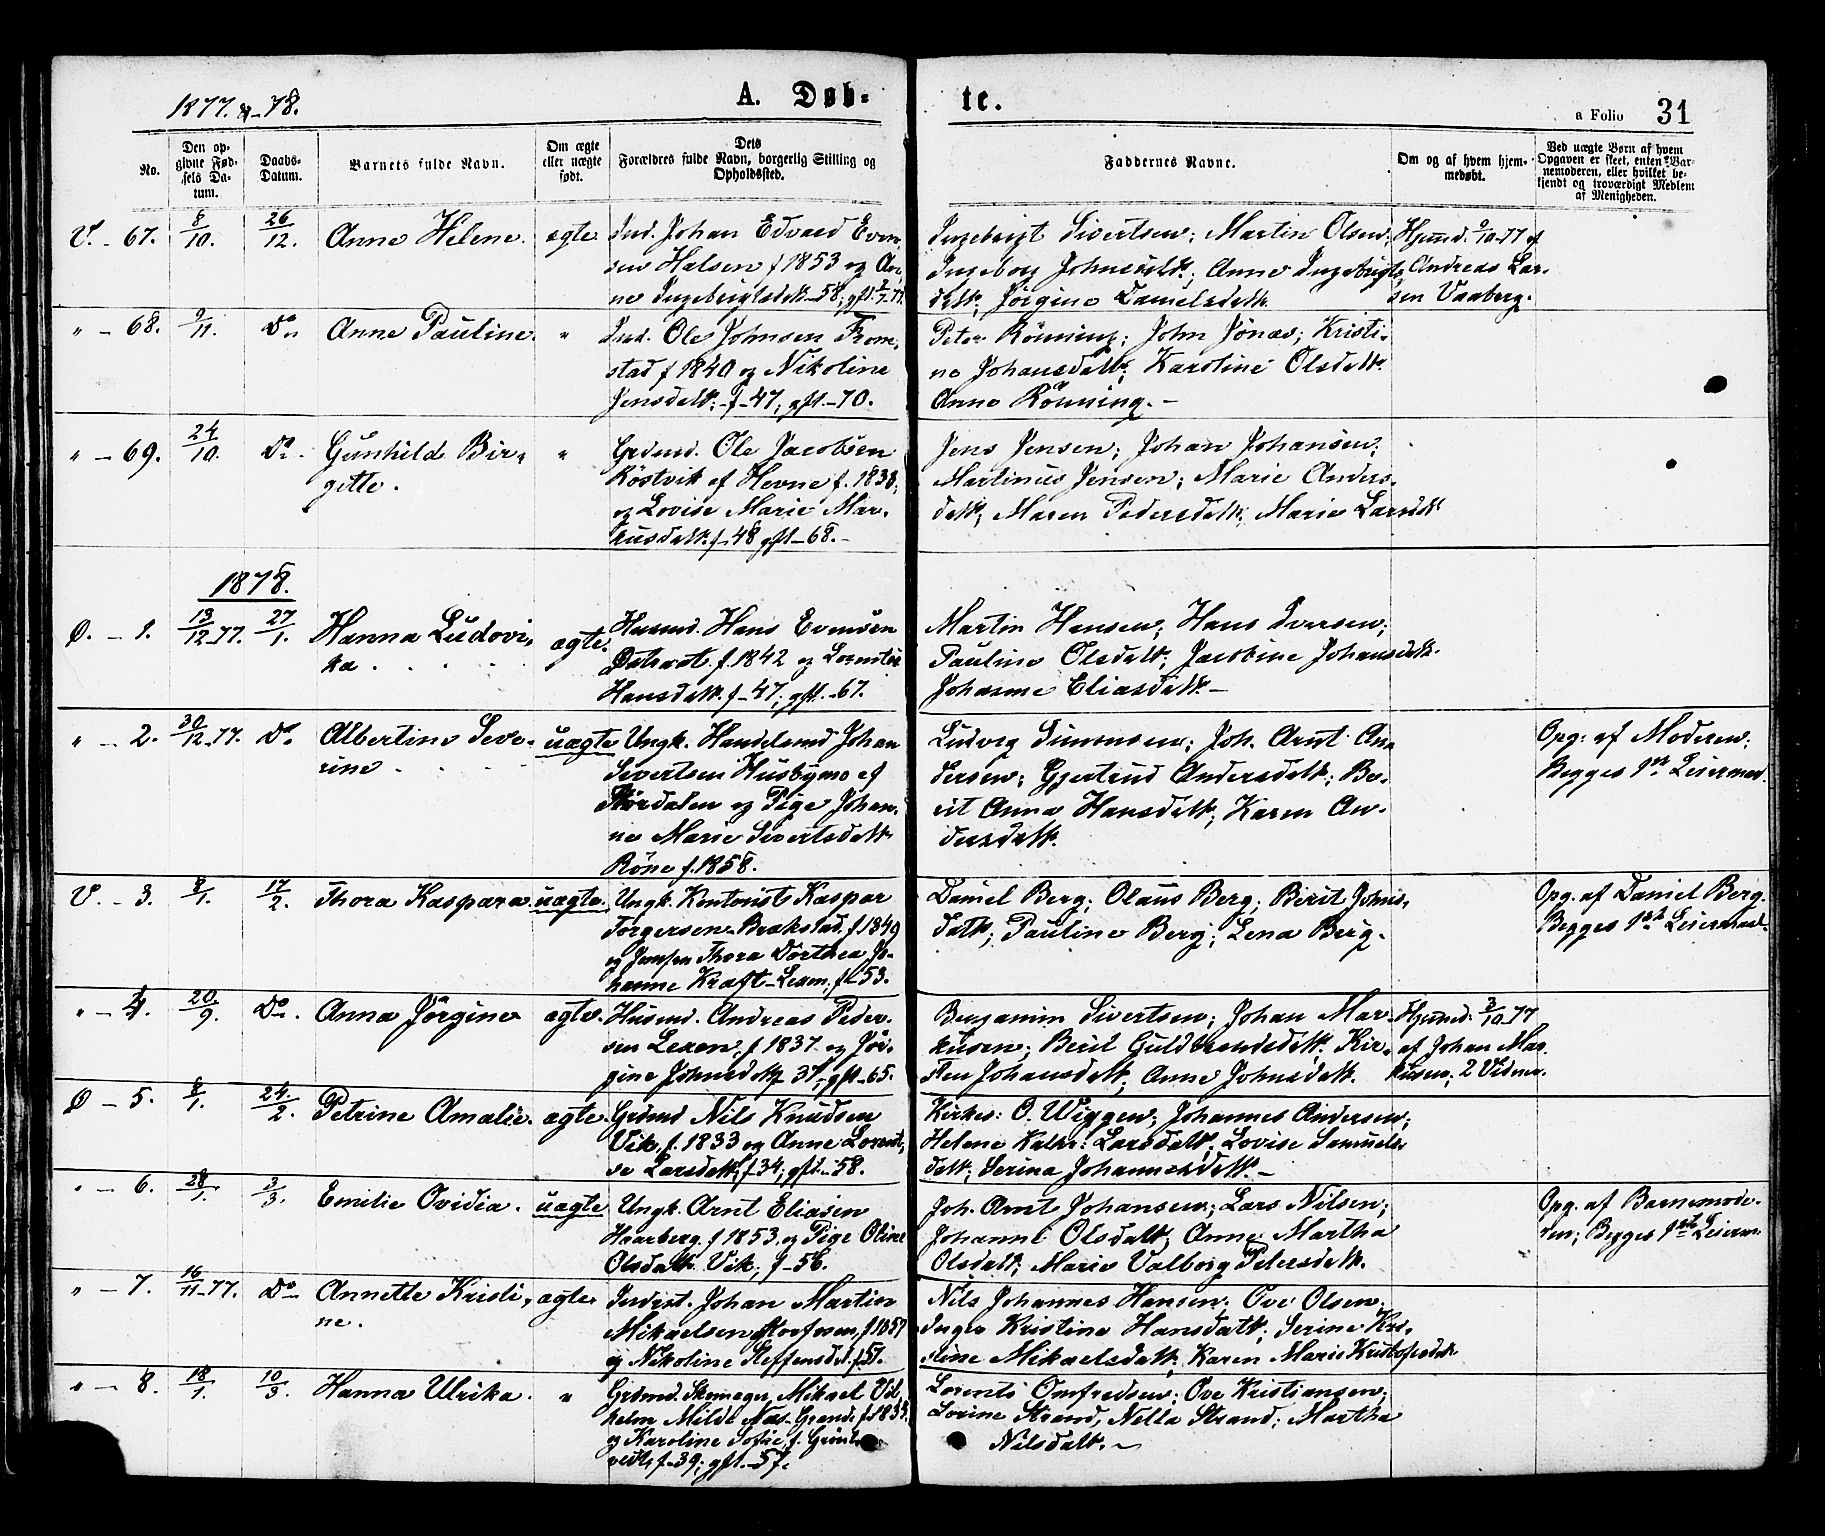 1877. & -78.
A. Døb-
te.
a Folio 31
No.
Den op-
givne Fød-
sels Da-
tum.
Daabs-
Datum.
Barnets fulde Navn.
Om ægte
eller uægte
født.
Dets
Forældres fulde Navn, borgerlig Stilling og
Opholdssted.
Faddernes Navne.
Om og af hvem hjem-
medøbt.
Ved uægte Børn af hvem
Opgaven er skeet, enten Bar-
nemoderen, eller hvilket be-
kjendt og troværdigt Medlem
af Menigheden.
V. - 67. 8/10. 26/12. Anne Helene. ægte. Ind. Johan Edvard Even-
sen Halsen f 1853 og An-
ne Ingebrigtsdatt. - 58; gft.
Ingebrigt Sivertsen; Martin Olsen;
Ingeborg Johnsdatt.; Anne Ingebrigts-
datt; Jørgine Danielsdatt.
Hjemd. 9/10 77 af
Andreas Lar-
sen Vaaberg.
" - 68. 9/11. Do. Anne Pauline. " Ind. Ole Johnsen From-
stad f 1840 og Nikoline
Jensdatt; - f - 47; gft. - 70.
Peter Rönning; John Jönas; Kristi-
ne Johansdatt; Karoline Olsdatt.
Anne Rönning. -
" - 69. 24/10. Do. Gunhild Bir-
gitte.
" Grdmd. Ole Jacobsen
Röstvik af Hevne f. 1838;
og Lovise Marie Mar-
kusdatt. f - 48 gft - 68. -
Jens Jensen; Johan Johansen;
Martinus Jensen; Marie Anders-
datt; Maren Pedersdatt; Marie Larsdatt
1878.
Ø. - 1. 13/12 77. 27/1. Hanna Ludovi-
ka.
ægte. Husmd. Hans Evensen
Östraat f. 1842 og
Hansdatt. f - 47; gft. - 67.
Martin Hansen; Hans Iversen;
Pauline Olsdatt; Jacobine Johansdatt.
Johanne Eliasdatt. -
" - 2. 30/12 77. Do. Albertine Seve-
rine
uægte Ungk. Handelsmd Johan
Sivertsen Husbymo af
Stördalen og Pige Johan-
ne Marie Sivertsdatt
Röne f. 1858.
Ludvig Simonsen; Joh. Arnt An-
dersen; Gjertrud Andersdatt; Be-
rit Anna Hansdatt; Karen An-
dersdatt.
Opg. af Moderen;
Begges 1ste Leiermaal.
V. - 3. 8/1. 17/2. Thora Kaspara uægte. Ungk. Kontorist Kaspar
Torgersen Brækstad f 1849
og Jomfru Thora Dorthea Jo-
hanne Kraft - Lexen; f - 53.
Daniel Berg; Olaus Berg; Berit Johns-
datt; Pauline Berg; Lena Berg.
Opg. af Daniel Berg.
Begges 1ste Leiermaal.
" - 4. 20/9. Do. Anna Jörgine ægte. Husmd. Andreas Peder-
sen Lexen, f 1837 og Jör-
gine Johnsdatt 37; gft - 65.
Benjamin Sivertsen; Johan Mar-
kusen; Berit Guldbrandsdatt; Kir-
sten Johansdatt; Anne Johnsdatt.
Hjemmd. 3/10 77
af Johan Mar-
kusen; 2 Vidner.
Ø - 5. 8/1. 24/2. Petrine Amalie. ægte. Grdmd Nils Knudsen
Vik, f. 1833 og Anne Lorent-
se Larsdatt, f 34; gft. - 58.
Kirkes: O. Wiggen; Johannes Andersen;
Helene Kathr: Larsdatt; Lovise Samuels-
datt; Serina Johannesdatt. -
" - 6. 28/1. 3/3. Emilie Ovidia. uægte Ungk. Arnt Eliasen
Haarberg, f 1853. og Pige Oline
Olsdatt. Vik; f - 56.
Joh. Arnt Johansen; Lars Nilsen;
Johanne Olsdatt; Anne Martha
Olsdatt; Marie Valborg Petersdatt.
Opg. af Barnemode-
ren; Begges 1ste Leierm:
" - 7. 16/11 77. Do Annette Kristi-
ne.
ægte. Inderst. Johan Martin
Mikaelsen f 1857
og Nikoline Steffensdt. f 51.
Nils Johannes Hansen; Ove Olsen
Inger Kristine Hansdatt; Serine Kri-
stine Mikaelsdatt; Karen Marie Kristofersdatt
" - 8. 18/1. 10/3. Hanna Ulrika. " Grdmd. Skomager, Mikael Vil-
helm Milde Næs - Grande f 1833
og Karoline Sofie f. Grönt-
vedt, f - 39; gft. - 57.
Lorents Omfredsen; Ove Kristiansen;
Lorine Strand; Nella Strand; Martha
Nilsdatt. -